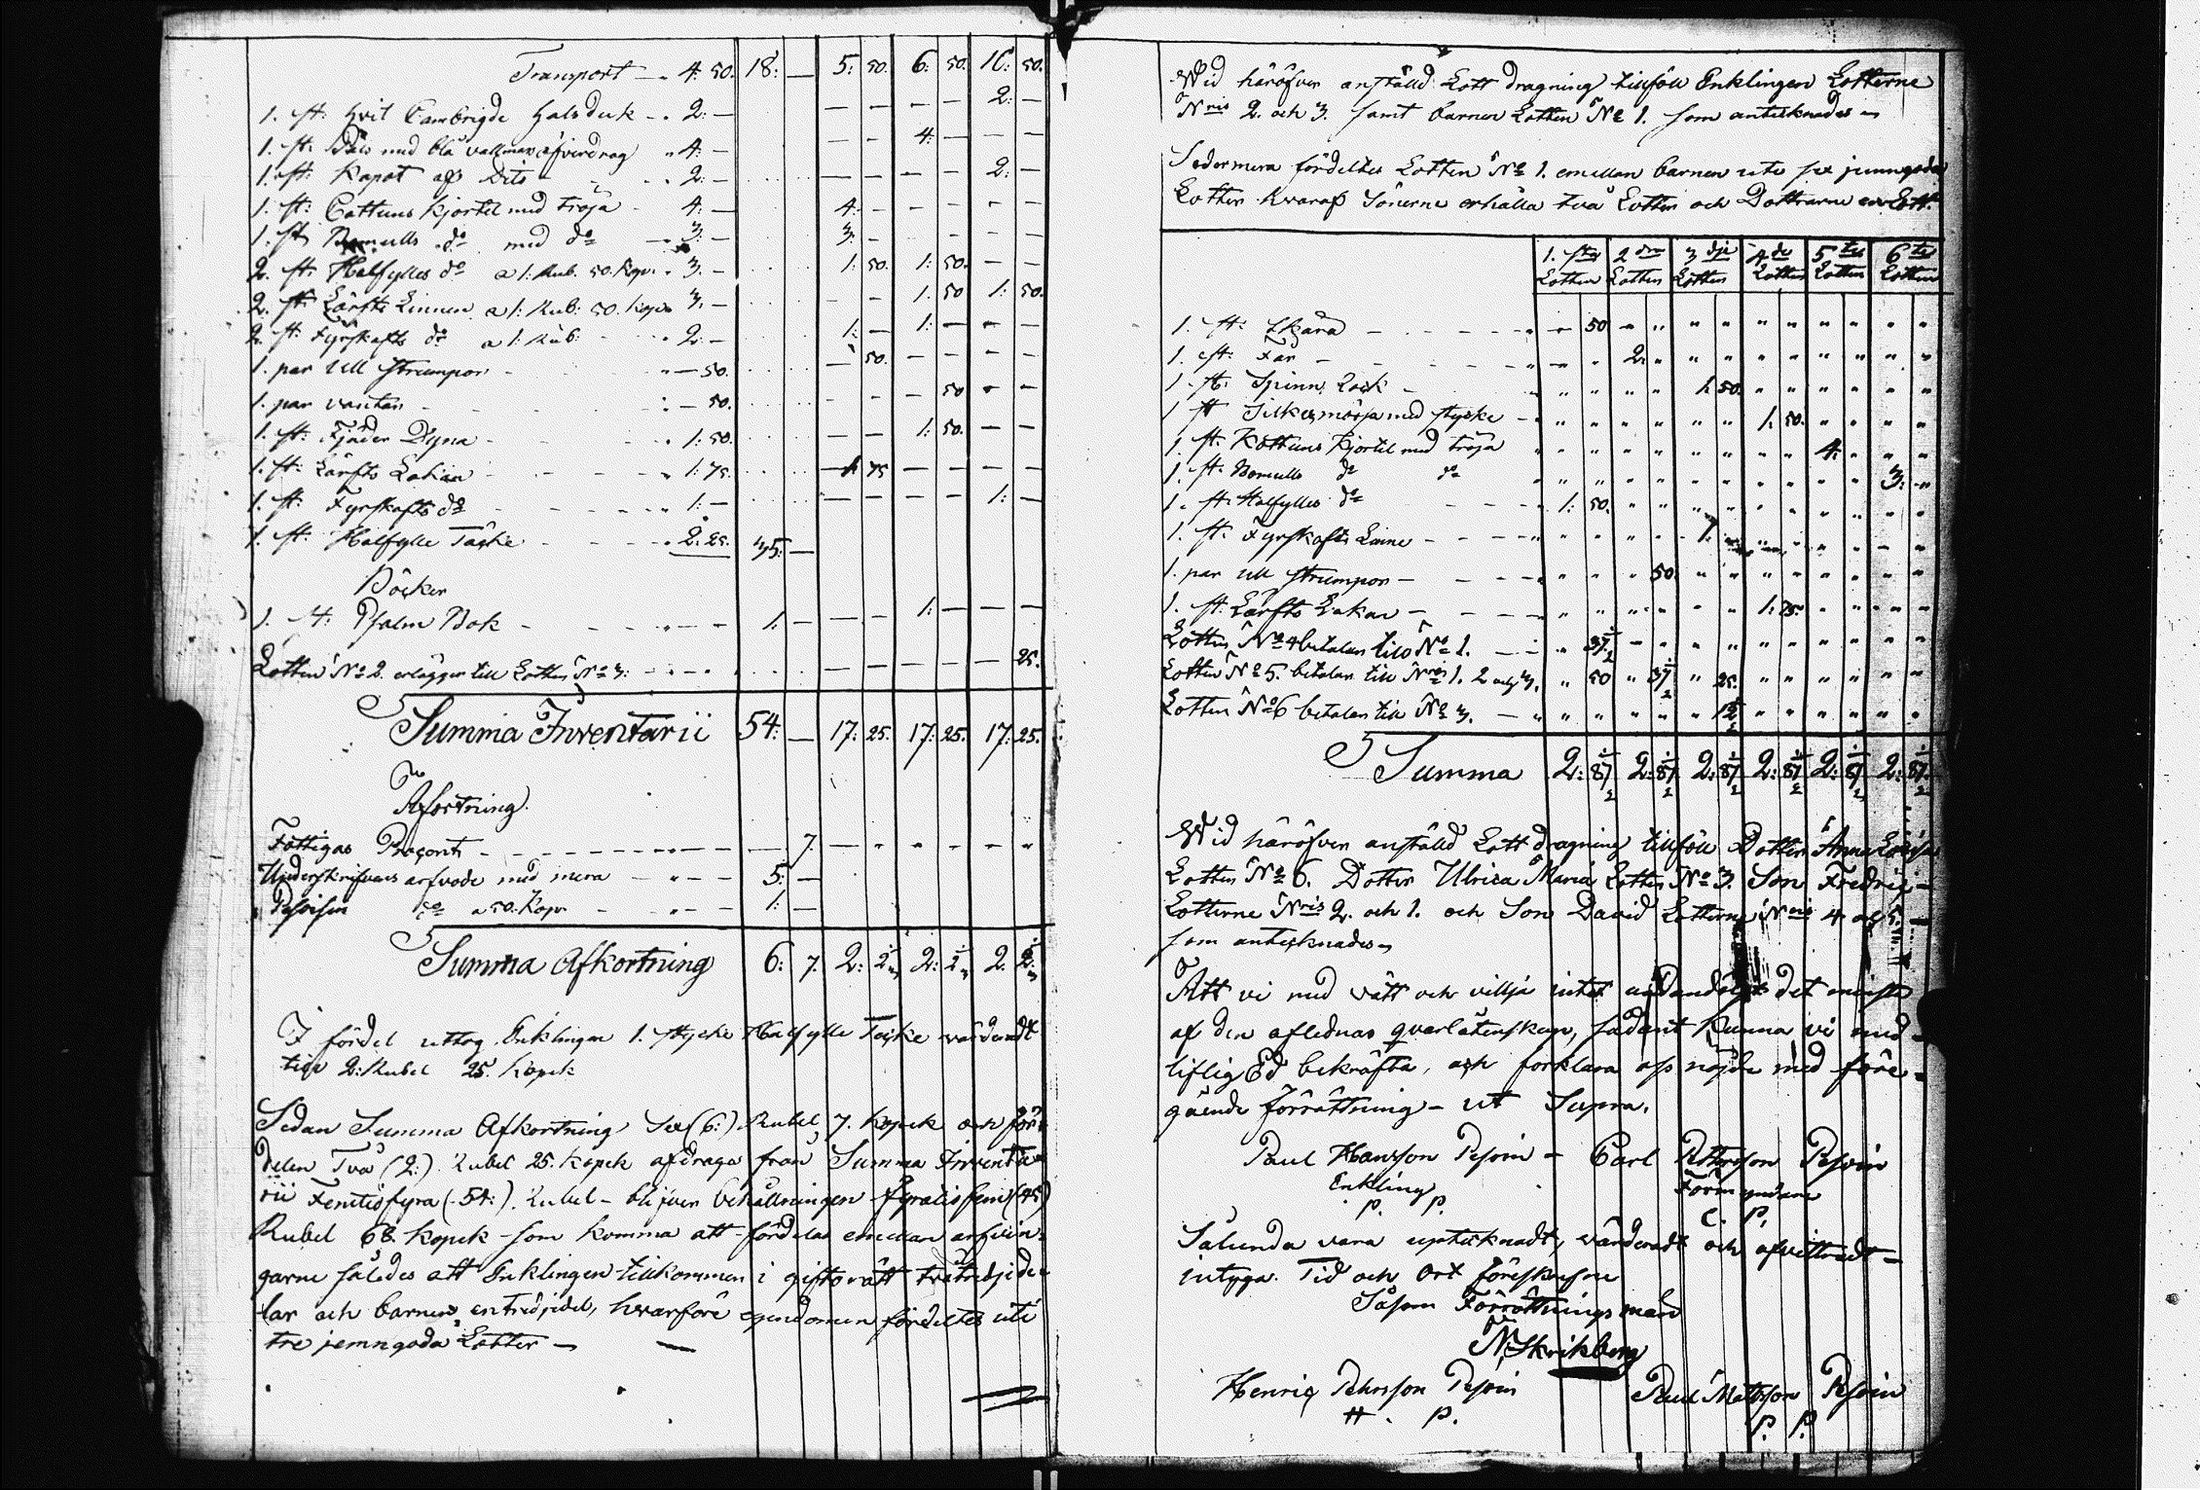 Transport — 4: 50. 18: — 5: 50. 6: 50. 16: 50.
1. st: Hvit Cambrigde Halsduk — 2: — — — — — 2: —
1. st: med blå vallmars öfverdrag 4: — — — 4: — — —
1. st: Kapot af Dito 2: — — — — — 2: —
1. st: Cattuns Kjortel med tröja 4: — 4: — — — — —
1. st: Bomulls do med do 3: — 3: — — — — —
2. st: Halfylles do a 1: Rub. 50. Kop. 3: — 1: 50. 1: 50. — —
2. st: Lärfts Linnen a 1: Rub: 50. Kop. 3: — — — 1: 50 1: 50.
2. st: Fyrskafts do a 1: Rub: 2: — 1: — 1: — — —
1. par Ull strumpor — 50. — 50. — — — —
1. par vantar — 50. — — — 50 — —
1. st: Fjäder Dyna 1: 50. — — 1: 50. — —
1. st: Lärfts Lakan 1: 75. 1: 75 — — — —
1. st: Fyrskafts do 1: — — — — — 1: —
1. st: Halfylle Täcke 2: 25. 35: —
Böcker
1. st: Psalm Bok 1: — — — 1: — — —
Lotten No 2. erlägger till Lotten No 3: — — — — — 25.
Summa Inventarii 54: — 17: 25. 17: 25. 17: 25.
Afkortning.
Fattigas Procent — 7.
Underskrifvens arfvode med mera 5: —
do a 50. Kop. 1: —
Summa Afkortning 6: 7. 2: 2 1/3 2: 2 1/3 2: 2 1/3
I fördel uttog Enklingen 1. stycke Halfylle Täcke värderadt
till 2: Rubel 25. Kopek
Sedan Summa Afkortning Sex (6:) Rubel 7. Kopek och för-
delen Två (2:) Rubel 25. Kopek afdragas från Summa Inventa-
rii Femtiofyra (54:). Rubel — blifver behållningen fyratiofem (45)
Rubel 68. Kopek — som komma att fördelas emellan arfvin-
garne således att Enklingen tillkommer i giftorätt två tredjede-
lar och barnen en tredjedel, hvarföre egendomen fördeltes uti
tre jemngoda Lotter —
Wid häröfver anställd Lott dragning tillföll Enklingen Lotterne
Nris 2. och 3. samt barnen Lotten No 1. som antecknades
Sedermera fördeltes Lotten No 1. emellan barnen uti sex jemngoda
Lotter hvaraf Sönerne erhålla två Lotter och Dottrarne en Lott.
1. sta Lotten 2 dra Lotten 3 dje Lotten 4 de Lotten 5 te Lotten 6 te Lotten
1. st: Skära 50
1. st: Får 2:
1. st: Spinn Rock 1: 50.
1. st: Silkesmössa med stycke 1: 50.
1. st: Kottuns Kjortel med tröja 4:
1. st: Bomulls do do 3:
1. st: Halfylles do 1: 50.
1. st: Fyrskafts Linne 1:
1. par Ull strumpor 50
1. st: Lärfts Lakan 1: 75.
Lotten No 4 betalar till No 1. 37 1/2
Lotten No 5. betalar till Nris 1. 2 och 3. 50 37 1/2 25.
Lotten No 6 betalar till No 3. 12 1/2
Summa 2: 87 1/2 2: 87 1/2 2: 87 1/2 2: 87 1/2 2: 87 1/2 2: 87 1/2
Wid häröfver anställd Lott dragning tillföll Dotter Anna Lovisa
Lotten No 6. Dotter Ulrica Maria Lotten No 3. Son Fredric
Lotterne Nris 2. och 1. och Son David Lotterne Nris 4 och 5.
som antecknades
Att vi med vett och vilja intet undandöljt det minsta
af den aflednas qvarlåtenskap, sådant kunna vi med
liflig Ed bekräfta, och förklara oss nöjda med före-
gående förrättning — ut Supra.
Paul Hansson — Carl Pettersson
Enkling Förmyndare
P. P. C. P.
Sålunda vara upteknadt, värderadt och afvittradt
intyga. Tid och Ort föreskrefne
Såsom Förrättningsmän
N. Skrikberg
Henric Pehrsson Paul Mattsson
H. P. P. P.